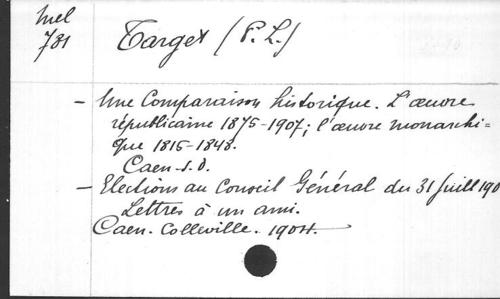 Mel
731
Target (P. L.)
- Une Comparaison historique. L'œuvre
républicaine 1875-1907; l'œuvre monarchi-
que 1815-1848.
Caen - s. d.
- Elections au Conseil Général du 31 Juill 190
Lettres à un ami.
Caen. Colleville. 1904.